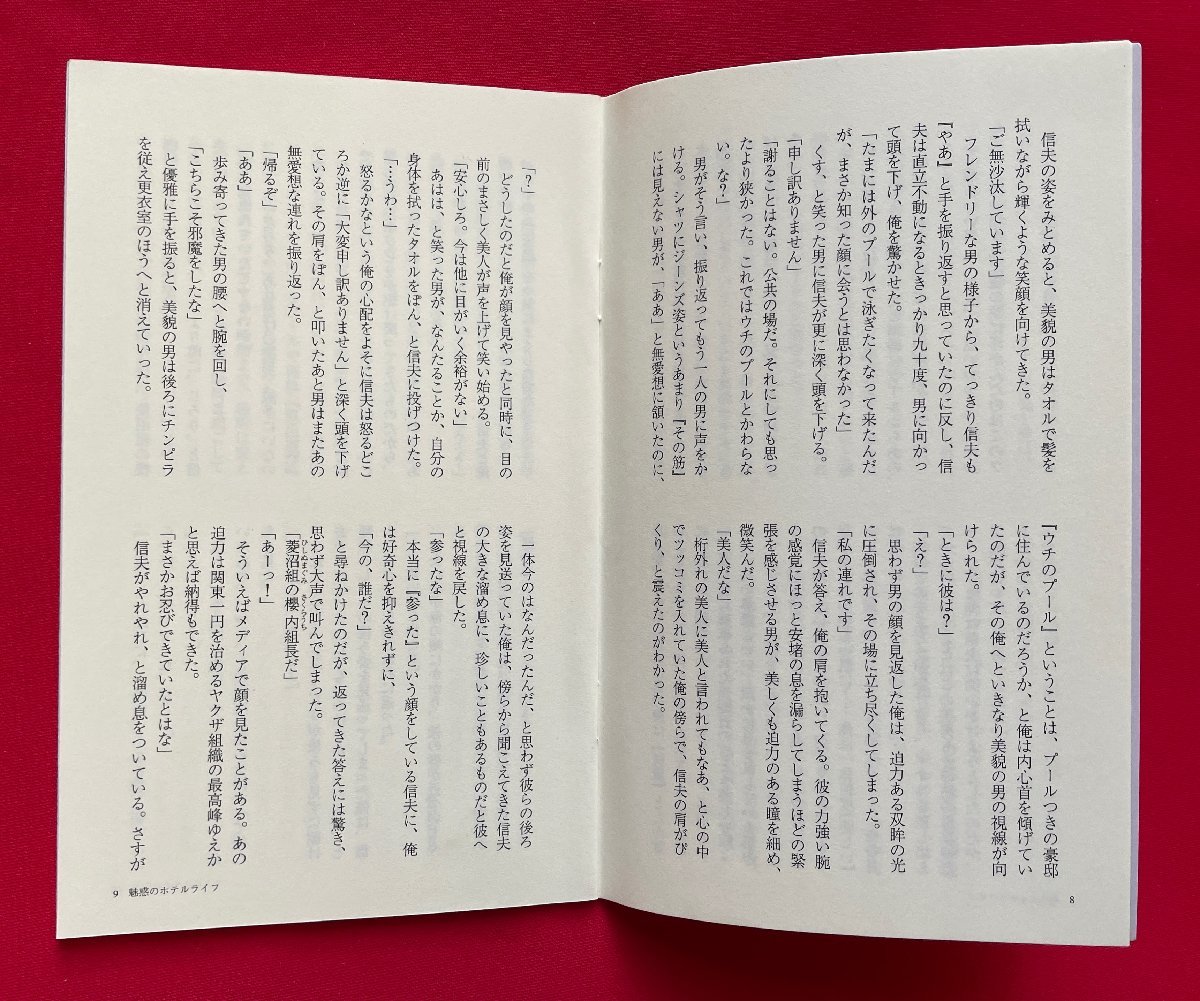 信夫の姿をみとめると、美貌の男はタオルで髪を
拭いながら輝くような笑顔を向けてきた。
「ご無沙汰しています」
フレンドリーな男の様子から、てっきり信夫も
『やあ』と手を振り返すと思っていたのに反し、信
夫は直立不動になるときっかり九十度、男に向かっ
て頭を下げ、俺を驚かせた。
「たまには外のプールで泳ぎたくなって来たんだ
が、まさか知った顔に会うとは思わなかった」
くす、と笑った男に信夫が更に深く頭を下げる。
「申し訳ありません」
「謝ることはない。公共の場だ。それにしても思っ
たより狭かった。これではウチのプールとかわらな
い。な？」
男がそう言い、振り返ってもう一人の男に声をか
ける。シャツにジーンズ姿というあまり『その筋』
には見えない男が、「ああ」と無愛想に頷いたのに、
『ウチのプール』ということは、プールつきの豪邸
に住んでいるのだろうか、と俺は内心首を傾げてい
たのだが、その俺へといきなり美貌の男の視線が向
けられた。
「ときに彼は？」
「え？」
思わず男の顔を見返した俺は、迫力ある双眸の光
に圧倒され、その場に立ち尽くしてしまった。
「私の連れです」
信夫が答え、俺の肩を抱いてくる。彼の力強い腕
の感覚にほっと安堵の息を漏らしてしまうほどの緊
張を感じさせる男が、美しくも迫力のある瞳を細め、
微笑んだ。
「美人だな」
桁外れの美人に美人と言われてもなあ、と心の中
でツッコミを入れていた俺の傍らで、信夫の肩がび
くり、と震えたのがわかった。
8
「？」
どうしたのだと俺が顔を見やったと同時に、目の
前のまさしく美人が声を上げて笑い始める。
「安心しろ。今は他に目がいく余裕がない」
あはは、と笑った男が、なんたることか、自分の
身体を拭ったタオルをぽん、と信夫に投げつけた。
「…うわ…」
怒るかなという俺の心配をよそに信夫は怒るどこ
ろか逆に「大変申し訳ありません」と深く頭を下げ
ている。その肩をぽん、と叩いたあと男はまたあの
無愛想な連れを振り返った。
「帰るぞ」
「ああ」
歩み寄ってきた男の腰へと腕を回し、
「こちらこそ邪魔をしたな」
と優雅に手を振ると、美貌の男は後ろにチンピラ
を従え更衣室のほうへと消えていった。
一体今のはなんだったんだ、と思わず彼らの後ろ
姿を見送っていた俺は、傍らから聞こえてきた信夫
の大きな溜め息に、珍しいこともあるものだと彼へ
と視線を戻した。
「参ったな」
本当に『参った』という顔をしている信夫に、俺
は好奇心を抑えきれずに、
「今の、誰だ？」
と尋ねかけたのだが、返ってきた答えには驚き、
思わず大声で叫んでしまった。
「菱沼組の櫻内組長だ」
「あーっ！」
そういえばメディアで顔を見たことがある。あの
迫力は関東一円を治めるヤクザ組織の最高峰ゆえか
と思えば納得もできた。
「まさかお忍びできていたとはな」
信夫がやれやれ、と溜め息をついている。さすが
9 魅惑のホテルライフ